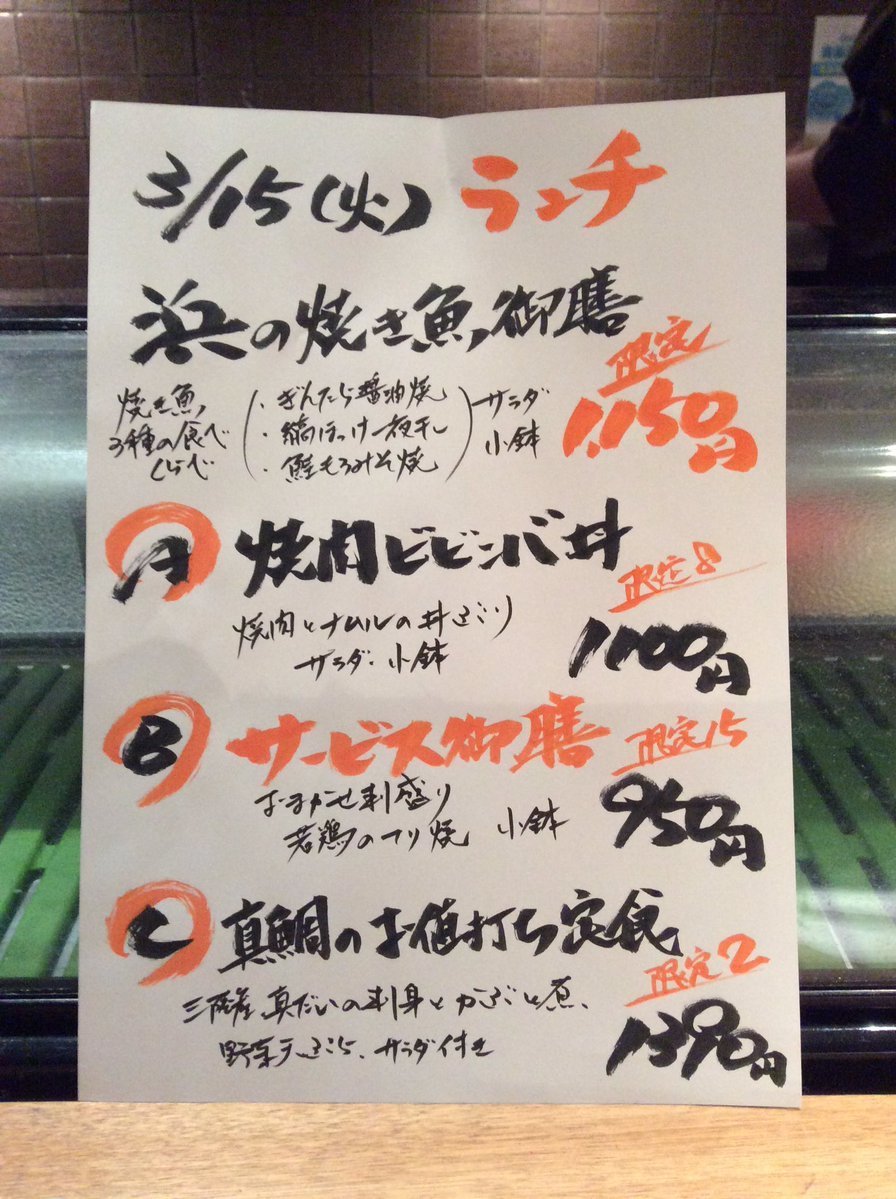 3/15(火) ランチ
浜の焼き魚御膳
限定
1,150円
焼き魚
3種の食べ
くらべ
・ぎんだら醤油焼
・縞ほっけ一夜干し
・鮭もろみそ焼
サラダ
小鉢
A 焼肉ビビンバ丼
限定8
焼肉とナムルの丼
サラダ・小鉢
1100円
B サービス御膳
限定15
おまかせ刺盛り
若鶏のてり焼 小鉢
950円
C 真鯛のお値打ち定食
限定2
三陸産真だいの刺身とかぶと煮、
野菜天ぷら、サラダ付き
1390円